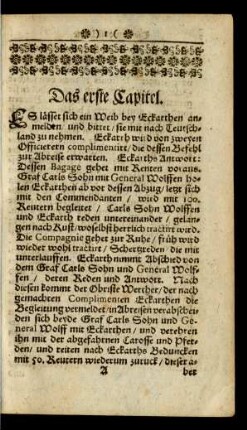 ) 1 (
Das erste Capitel.
ES lässet sich ein Weib bey Eckarthen an-
melden und bittet / sie mit nach Teutsch-
land zu nehmen. Eckarth wird von zweyen
Officierern complimentirt / die dessen Befehl
zur Abreise erwarten. Eckarths Antwort:
Dessen Bagage gehet mit Reutern voraus.
Graf Carls Sohn mit General Wolffen ho-
len Eckarthen ab vor dessen Abzug / letzt sich
mit den Commendanten / wird mit 100.
Reutern begleitet / Carls Sohn Wolffen
und Eckarth reden untereinander / gelan-
gen nach Ruß / woselbst herrlich tractirt wird.
Die Compagnie gehet zur Ruhe / früh wird
wieder wohl tractirt / Schertzreden die mit
unterlauffen. Eckarth nimmt Abschied von
dem Graf Carls Sohn und General Wolf-
fen / deren Reden und Antwort. Nach
diesen kommt der Obriste Werther / der nach
gemachten Complimenten Eckarthen die
Begleitung vermeldet / in Abreisen verabschei-
den sich beyde Graf Carls Sohn und Ge-
neral Wolff mit Eckarthen / und verehren
ihn mit der abgefahrnen Carosse und Pfer-
den / und reiten nach Eckarths Beduncken
mit 50. Reutern wiederum zurück / dieser a-
A ber